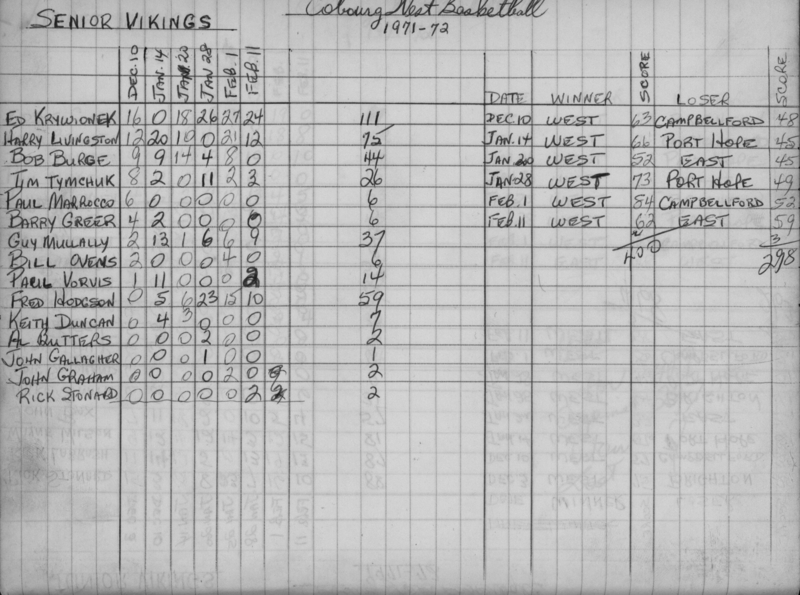 SENIOR VIKINGS Cobourg West Basketball
1971-72
DEC. 10 JAN. 14 JAN 20 JAN 28 FEB. 1 FEB. 11 DATE WINNER SCORE LOSER SCORE
ED KRYWIONEK 16 0 18 26 27 24 111 DEC 10 WEST 63 CAMPBELLFORD 48
HARRY LIVINGSTON 12 20 10 0 21 12 75 JAN. 14 WEST 66 PORT HOPE 45
BOB BURGE 9 9 14 4 8 0 44 JAN. 20 WEST 52 EAST 45
TIM TYMCHUK 8 2 0 11 2 3 26 JAN-28 WEST 73 PORT HOPE 49
PAUL MARROCCO 6 0 0 0 0 0 6 FEB. 1 WEST 84 CAMPBELLFORD 52
BARRY GREER 4 2 0 0 0 0 6 FEB. 11 WEST 62 EAST 59
GUY MULLALLY 2 13 1 6 6 9 37 400 3
BILL OVENS 2 0 0 0 4 0 6 298
PAUL VORVIS 1 11 0 0 0 2 14
FRED HODGSON 0 5 6 23 15 10 59
KEITH DUNCAN 0 4 3 0 0 0 7
AL BUTTERS 0 0 0 2 0 0 2
JOHN GALLAGHER 0 0 0 1 0 0 1
JOHN GRAHAM 0 0 0 0 2 0 2
RICK STONARD 0 0 0 0 0 2 2